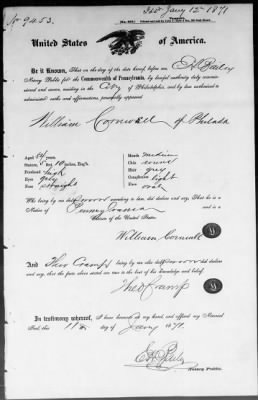 No 9453.
Issd Jany 12th 1871
United States of America.
Be it Known, That on the day of the date hereof, before me
Notary Public for the Commonwealth of Pennsylvania, by lawful authority duly commissioned
and sworn, residing in the City of Philadelphia, and by law authorized to
administer oaths and affirmations, personally appeared
William Cornwell of Philada
Aged years,
Stature, 5 10 inches, Eng'h.
Forehead high
Eyes grey
Nose straight
Mouth medium
Chin round
Hair grey
Complexion light
Face oval
Who being by me duly sworn according to law, did declare and say, That he is a
Native of Pennsylvania
Citizen of the United States.
William Cornwell
And Theo Cramp being by me also duly sworn did declare
and say, that the facts above stated are true to the best of his knowledge and belief.
Theo Cramp
In testimony whereof, I have hereunto set my hand, and affixed my Notarial
Seal, this 11th day of Jany 1871.
Notary Public.